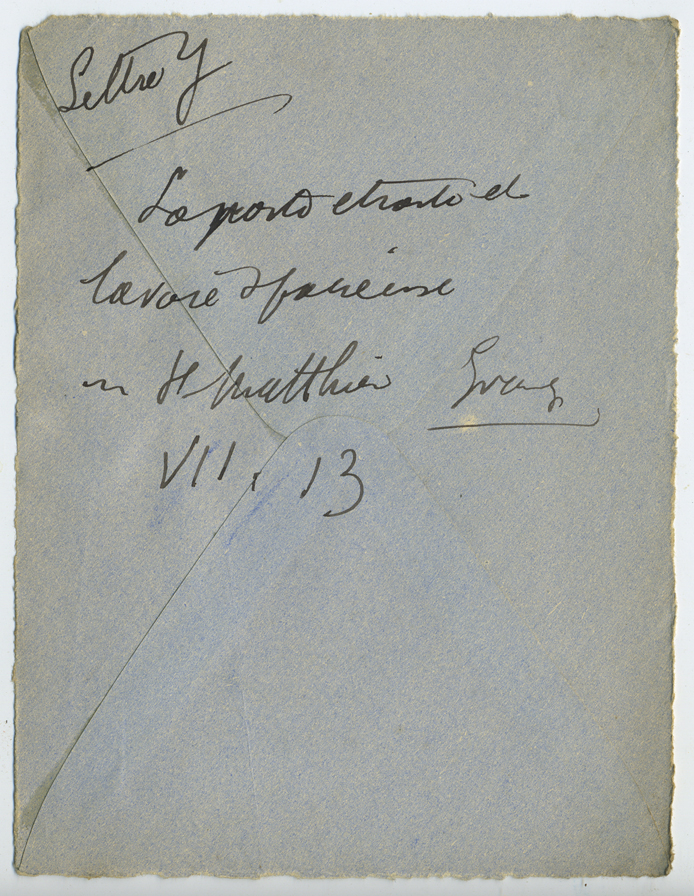 Lettre Y
La porte étroite et
la voie spacieuse
in St Matthieu Evang
VII, 13